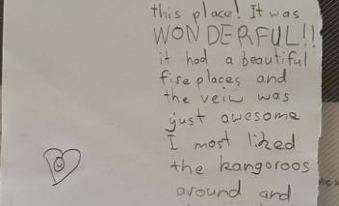 this place! It was
WONDERFUL!!
it had a beautiful
fire places and
the veiw was
just awesome
I most liked
the kangoroos
around and